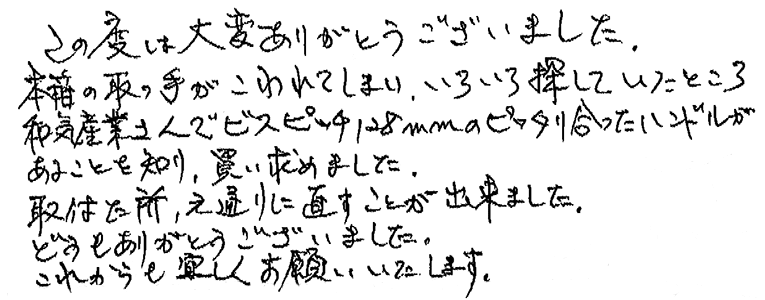 この度は大変ありがとうございました。
本箱の取っ手がこわれてしまい、いろいろ探していたところ
和気産業さんでビスピッチ128mmのピッタリ合ったハンドルが
あることを知り、買い求めました。
取付た所、元通りに直すことが出来ました。
どうもありがとうございました。
これからも宜しくお願いいたします。